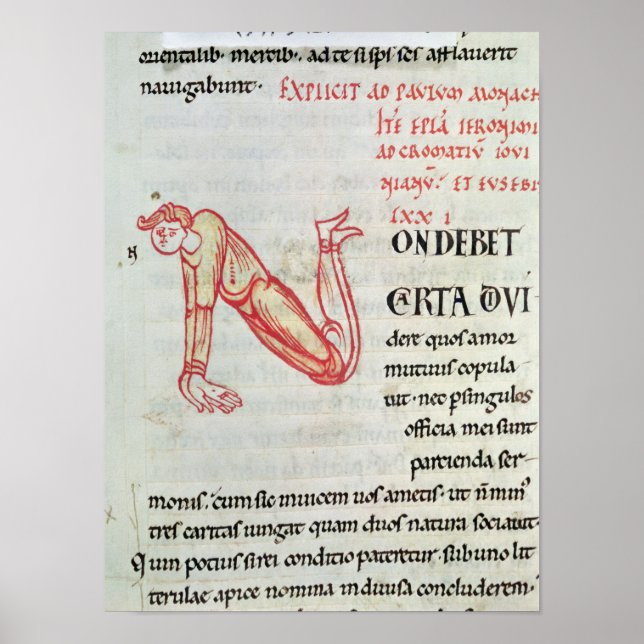 orientalib· mercib·, ad te si ipsi ses afflauerit
nauigabunt·
EXPLICIT AD PAULUM MONACH
ITE EPLA IERONIMI
AD CROMATIU IOVI
NIANU· ET EUSEBI
LXX I
N
ON DEBET
CARTA DIVI-
dere quos amor
mutuus copula
uit· nec p singulos
officia mei sunt
partienda ser
monis· cum sic inuicem uos ametis· ut n min
tres caritas iungat quam duos natura sociauit·
Quin potius si rei conditio pateretur· sub uno lit
terulae apice nomina indiuisa concluderem·